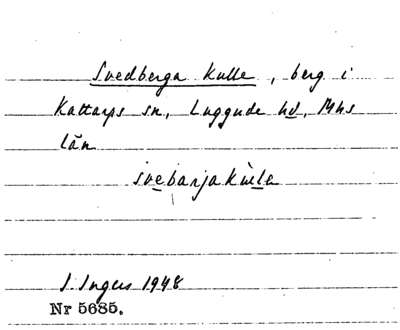 Svedberga kulle, berg i
Kattarps sn, Luggude hd, Mhs
län
svebarjakùlle
I. Ingers 1948
Nr 5685.